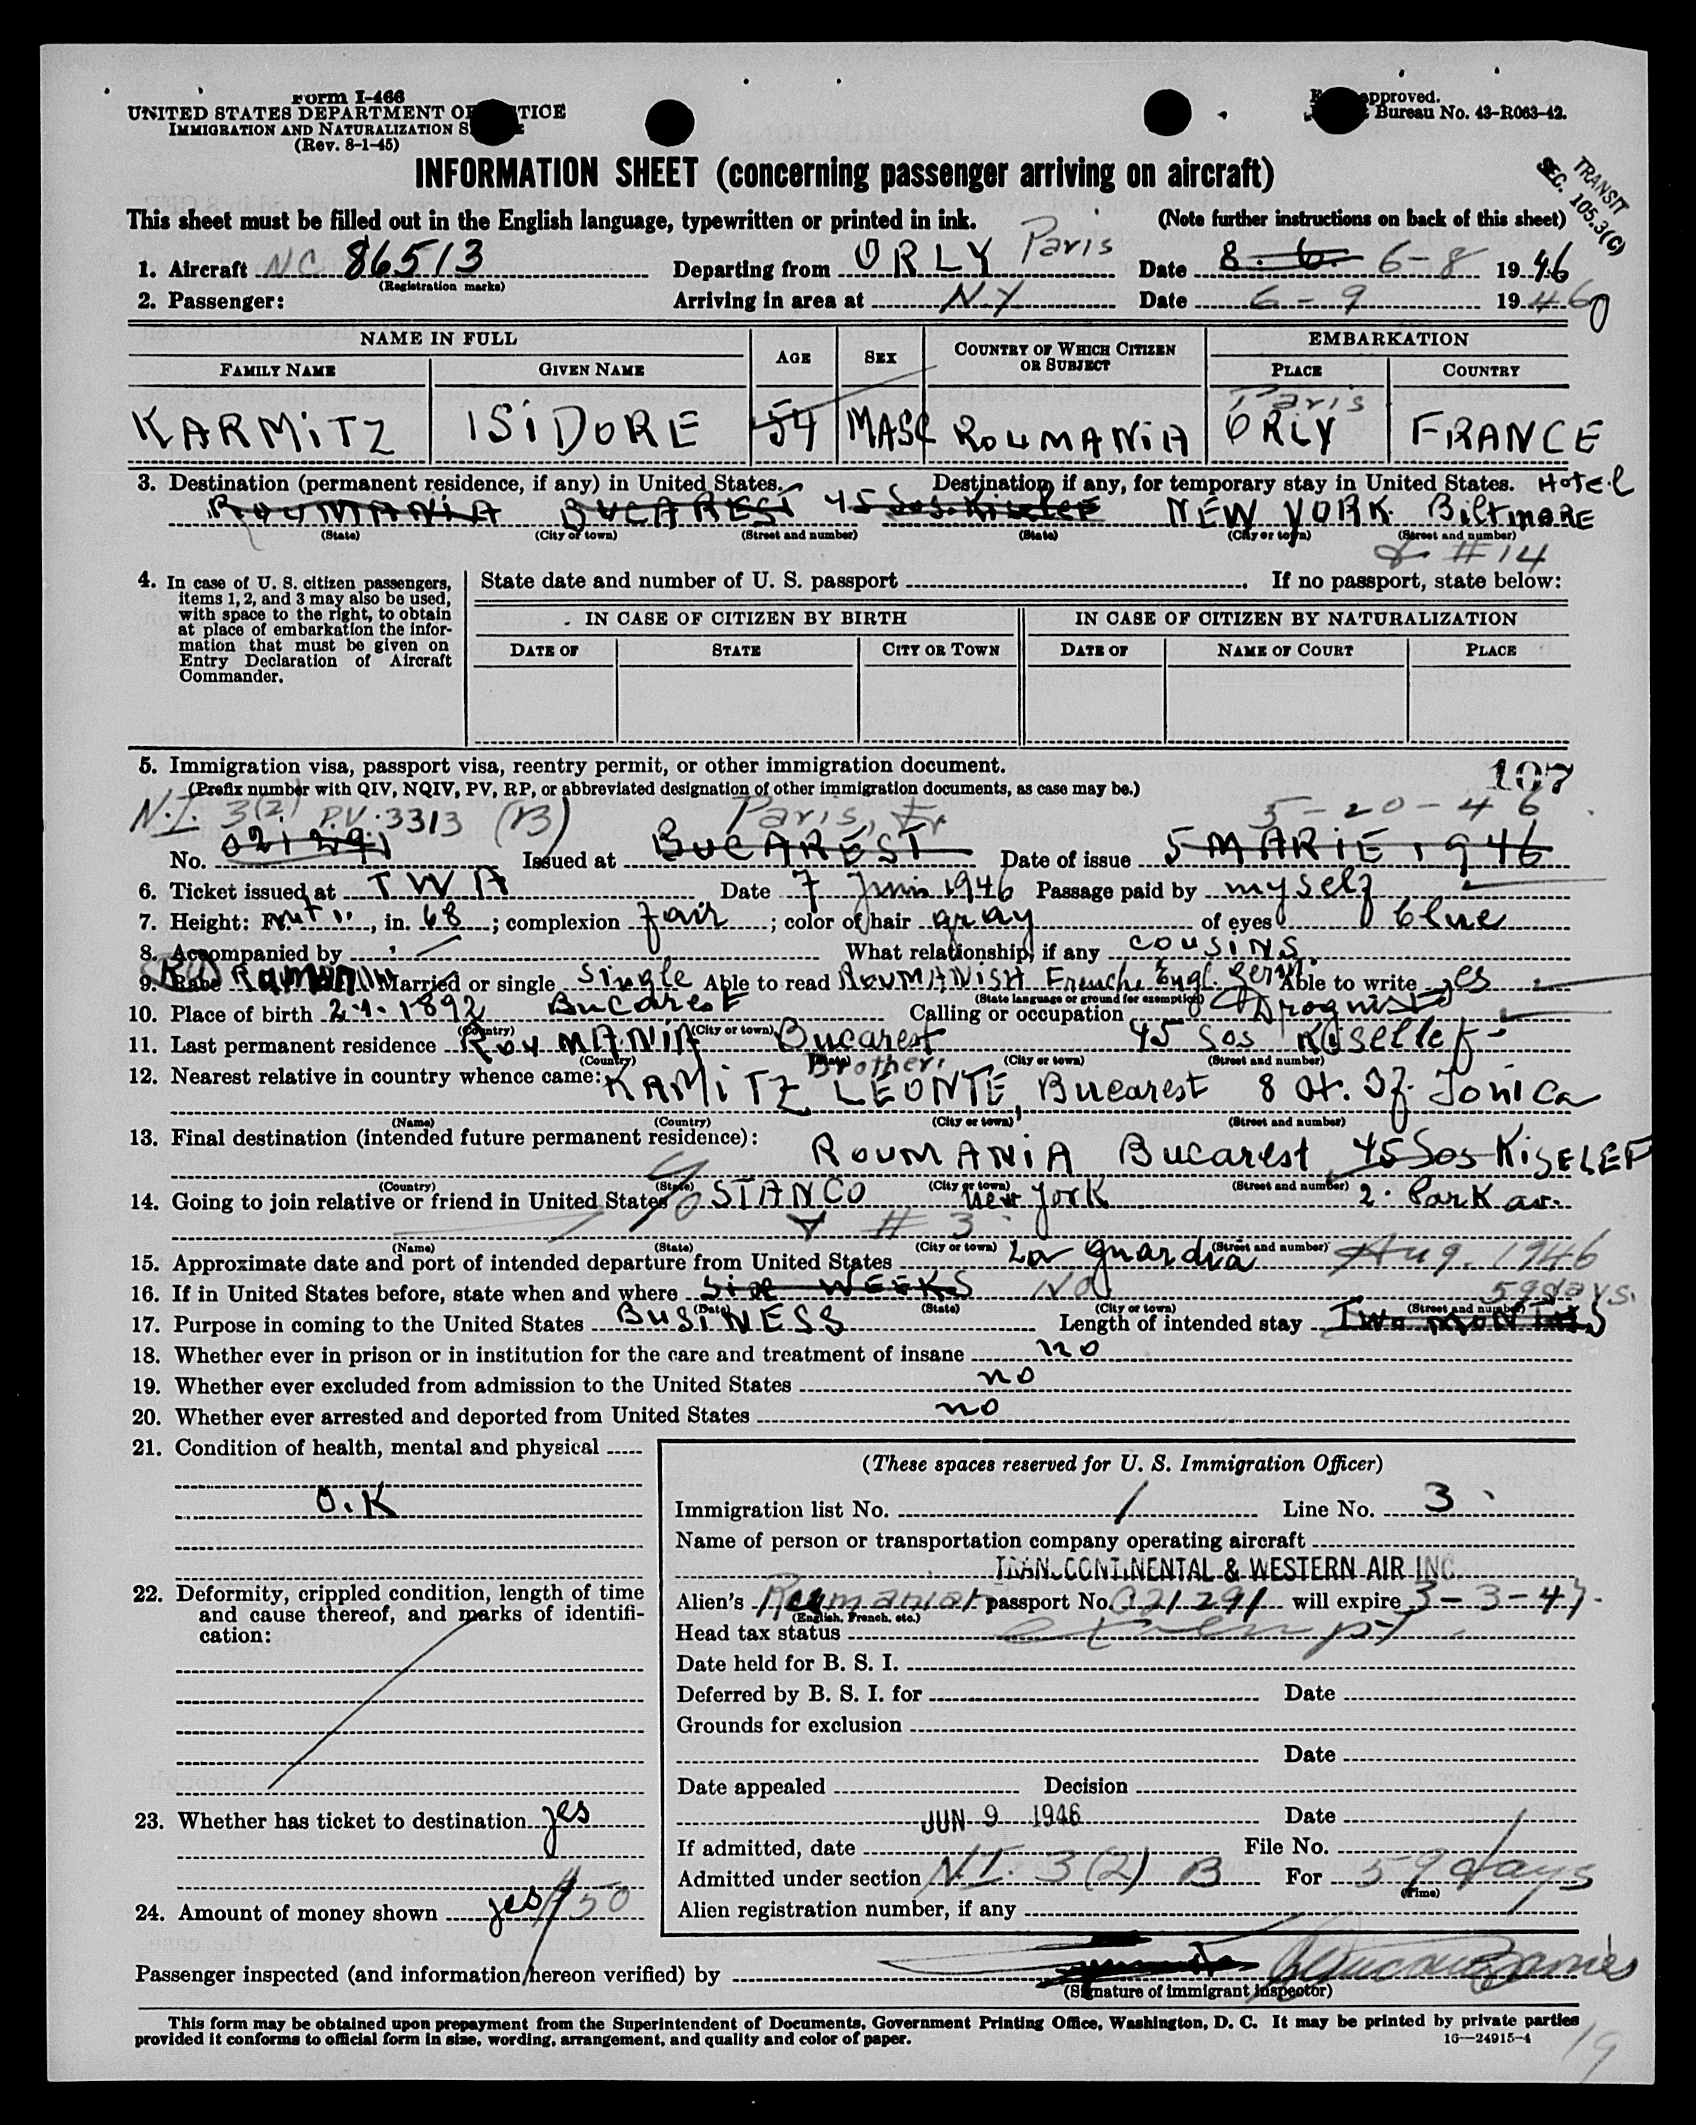 Form I-466
UNITED STATES DEPARTMENT OF JUSTICE
IMMIGRATION AND NATURALIZATION SERVICE
(Rev. 8-1-45)
approved.
Bureau No. 43-R063-42.
TRANSIT
SEC. 105.3(C)
INFORMATION SHEET (concerning passenger arriving on aircraft)
This sheet must be filled out in the English language, typewritten or printed in ink. (Note further instructions on back of this sheet)
1. Aircraft NC 86513 Departing from ORLY Paris Date 8. 6. 6-8 1946
(Registration marks)
2. Passenger: Arriving in area at N.Y Date 6-9 1946
NAME IN FULL AGE SEX COUNTRY OF WHICH CITIZEN OR SUBJECT EMBARKATION
FAMILY NAME GIVEN NAME PLACE COUNTRY
Paris
KARMiTZ ISiDORE 54 MASC ROUMANiA ORLY FRANCE
3. Destination (permanent residence, if any) in United States. Destination, if any, for temporary stay in United States. Hotel
ROUMANiA BUCAREST 45 Sos. Kiselef NEW YORK. BiltmoRE
(State) (City or town) (Street and number) (State) (City or town) (Street and number)
#14
4. In case of U. S. citizen passengers, items 1, 2, and 3 may also be used, with space to the right, to obtain at place of embarkation the information that must be given on Entry Declaration of Aircraft Commander.
State date and number of U. S. passport . If no passport, state below:
IN CASE OF CITIZEN BY BIRTH IN CASE OF CITIZEN BY NATURALIZATION
DATE OF STATE CITY OR TOWN DATE OF NAME OF COURT PLACE
5. Immigration visa, passport visa, reentry permit, or other immigration document. 107
(Prefix number with QIV, NQIV, PV, RP, or abbreviated designation of other immigration documents, as case may be.)
N.I. 3(2) P.V. 3313 (B) Paris, Fr 5-20-46
No. 021291 Issued at BUCAREST Date of issue 5 MARiE 1946
6. Ticket issued at TWA Date 7 Juin 1946 Passage paid by myself
7. Height: Ft. , in. 68; complexion fair; color of hair gray of eyes blue
8. Accompanied by What relationship, if any cousins.
9. Race Married or single single Able to read ROUMANiSH French Engl. Germ. Able to write yes
(State language or ground for exemption)
10. Place of birth 2.1.1892 Bucarest Calling or occupation Drognist
(Country) (City or town)
11. Last permanent residence ROUMANiA Bucarest 45 Sos Kiselef
(Country) (State) (City or town) (Street and number)
Brother.
12. Nearest relative in country whence came: KAMiTZ LEONTE, Bucarest 8 Jonica
(Name) (Country) (City or town) (Street and number)
13. Final destination (intended future permanent residence):
ROUMANiA Bucarest 45 Sos KiSELEF
(Country) (State) (City or town) (Street and number)
14. Going to join relative or friend in United States c/o STANCO New York 2. Park av.
# 3
(Name) (State) (City or town) (Street and number)
15. Approximate date and port of intended departure from United States La guardia Aug. 1946
16. If in United States before, state when and where Six WEEKS No
(Date) (State) (City or town) (Street and number)
59 days.
17. Purpose in coming to the United States BUSiNESS Length of intended stay Two MONTHS
18. Whether ever in prison or in institution for the care and treatment of insane no
19. Whether ever excluded from admission to the United States no
20. Whether ever arrested and deported from United States no
21. Condition of health, mental and physical
O.K
22. Deformity, crippled condition, length of time and cause thereof, and marks of identification:
23. Whether has ticket to destination yes
24. Amount of money shown yes $50
(These spaces reserved for U. S. Immigration Officer)
Immigration list No. 1 Line No. 3
Name of person or transportation company operating aircraft
TRANSCONTINENTAL & WESTERN AIR INC.
Alien's Rumanian passport No. 021291 will expire 3-3-47.
(English, French, etc.)
Head tax status exempt
Date held for B. S. I.
Deferred by B. S. I. for Date
Grounds for exclusion
Date
Date appealed Decision
JUN 9 1946 Date
If admitted, date File No.
Admitted under section N.I. 3(2) B For 59 days
(Time)
Alien registration number, if any
Passenger inspected (and information hereon verified) by
(Signature of immigrant inspector)
This form may be obtained upon prepayment from the Superintendent of Documents, Government Printing Office, Washington, D. C. It may be printed by private parties
provided it conforms to official form in size, wording, arrangement, and quality and color of paper. 16—24915-4
19